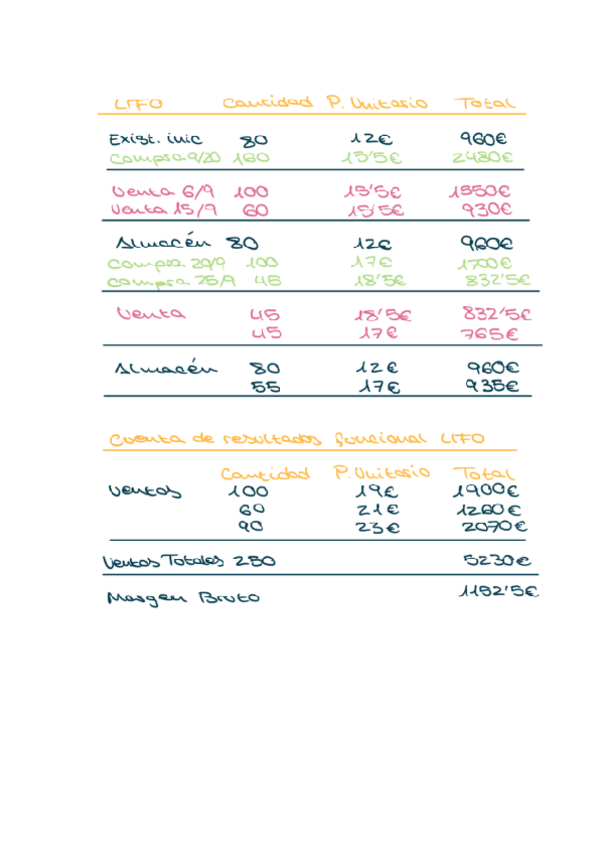 LIFO Cantidad P. Unitario Total
Exist. inic 80 12€ 960€
Compra 9/20 160 15'5€ 2480€
Venta 6/9 100 15'5€ 1550€
Venta 15/9 60 15'5€ 930€
Almacén 80 12€ 960€
Compra 20/9 100 17€ 1700€
Compra 25/9 45 18'5€ 832'5€
Venta 45 18'5€ 832'5€
45 17€ 765€
Almacén 80 12€ 960€
55 17€ 935€
Cuenta de resultados funcional LIFO
Cantidad P. Unitario Total
Ventas 100 19€ 1900€
60 21€ 1260€
90 23€ 2070€
Ventas Totales 250 5230€
Margen Bruto 1152'5€